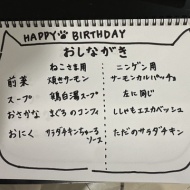 HAPPY BIRTHDAY
おしながき
ねこさま用 ニンゲン用
前菜 焼きサーモン サーモンカルパッチョ
スープ 鶏白湯スープ 左に同じ
おさかな まぐろのコンフィ ししゃもエスカベッシュ
おにく サラダチキンちゅ〜る ただのサラダチキン
ソース